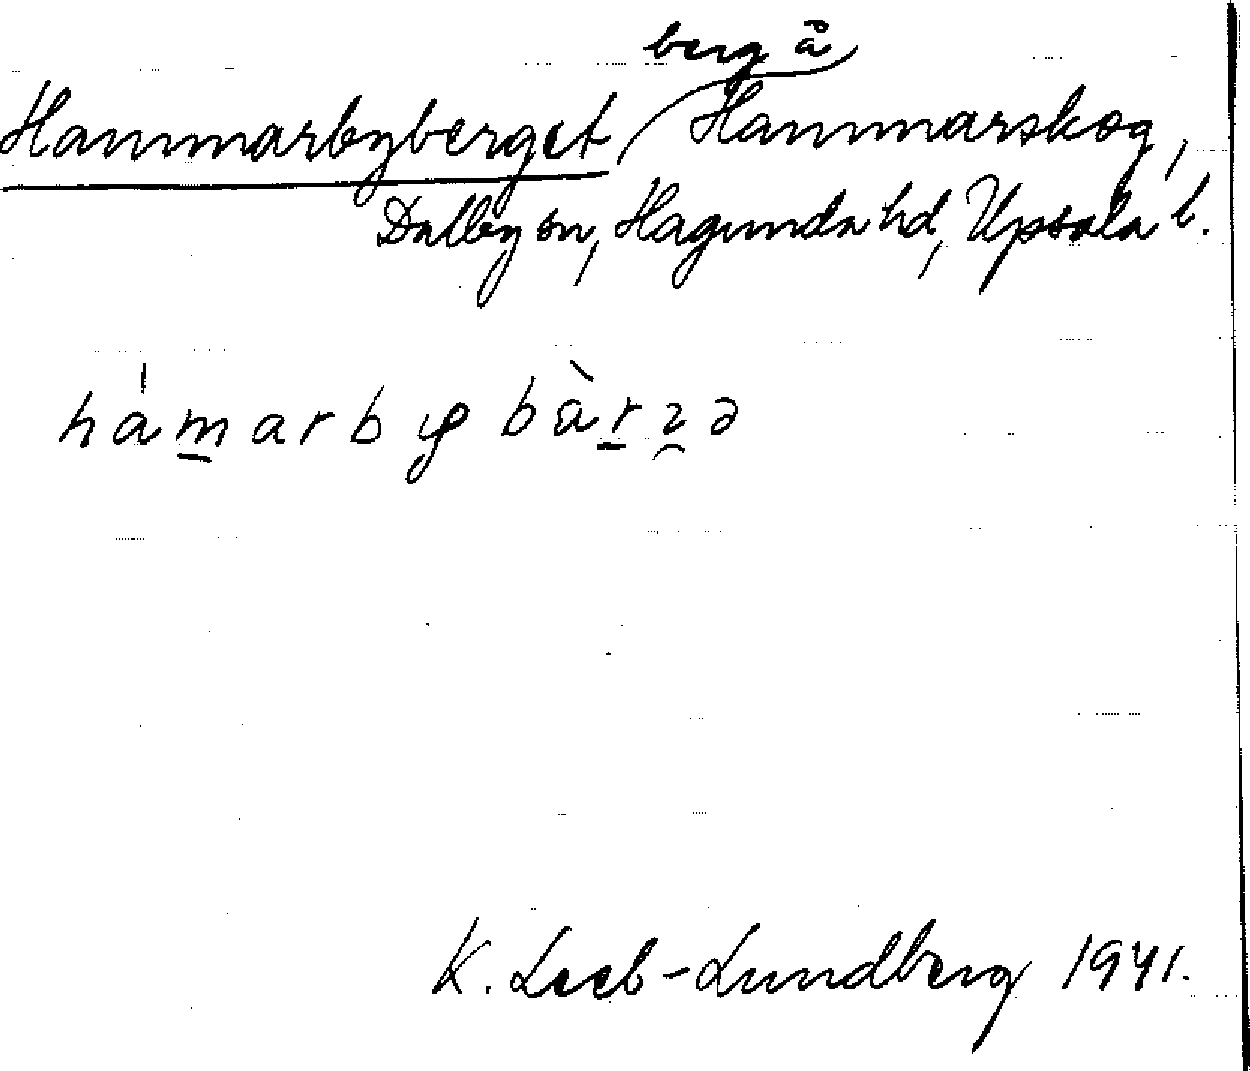 berg å
Hammarbyberget, Hammarskog,
Dalby sn, Hagunda hd, Upsala l.
hámarbybàrɀə
K. Leeb-Lundberg 1941.